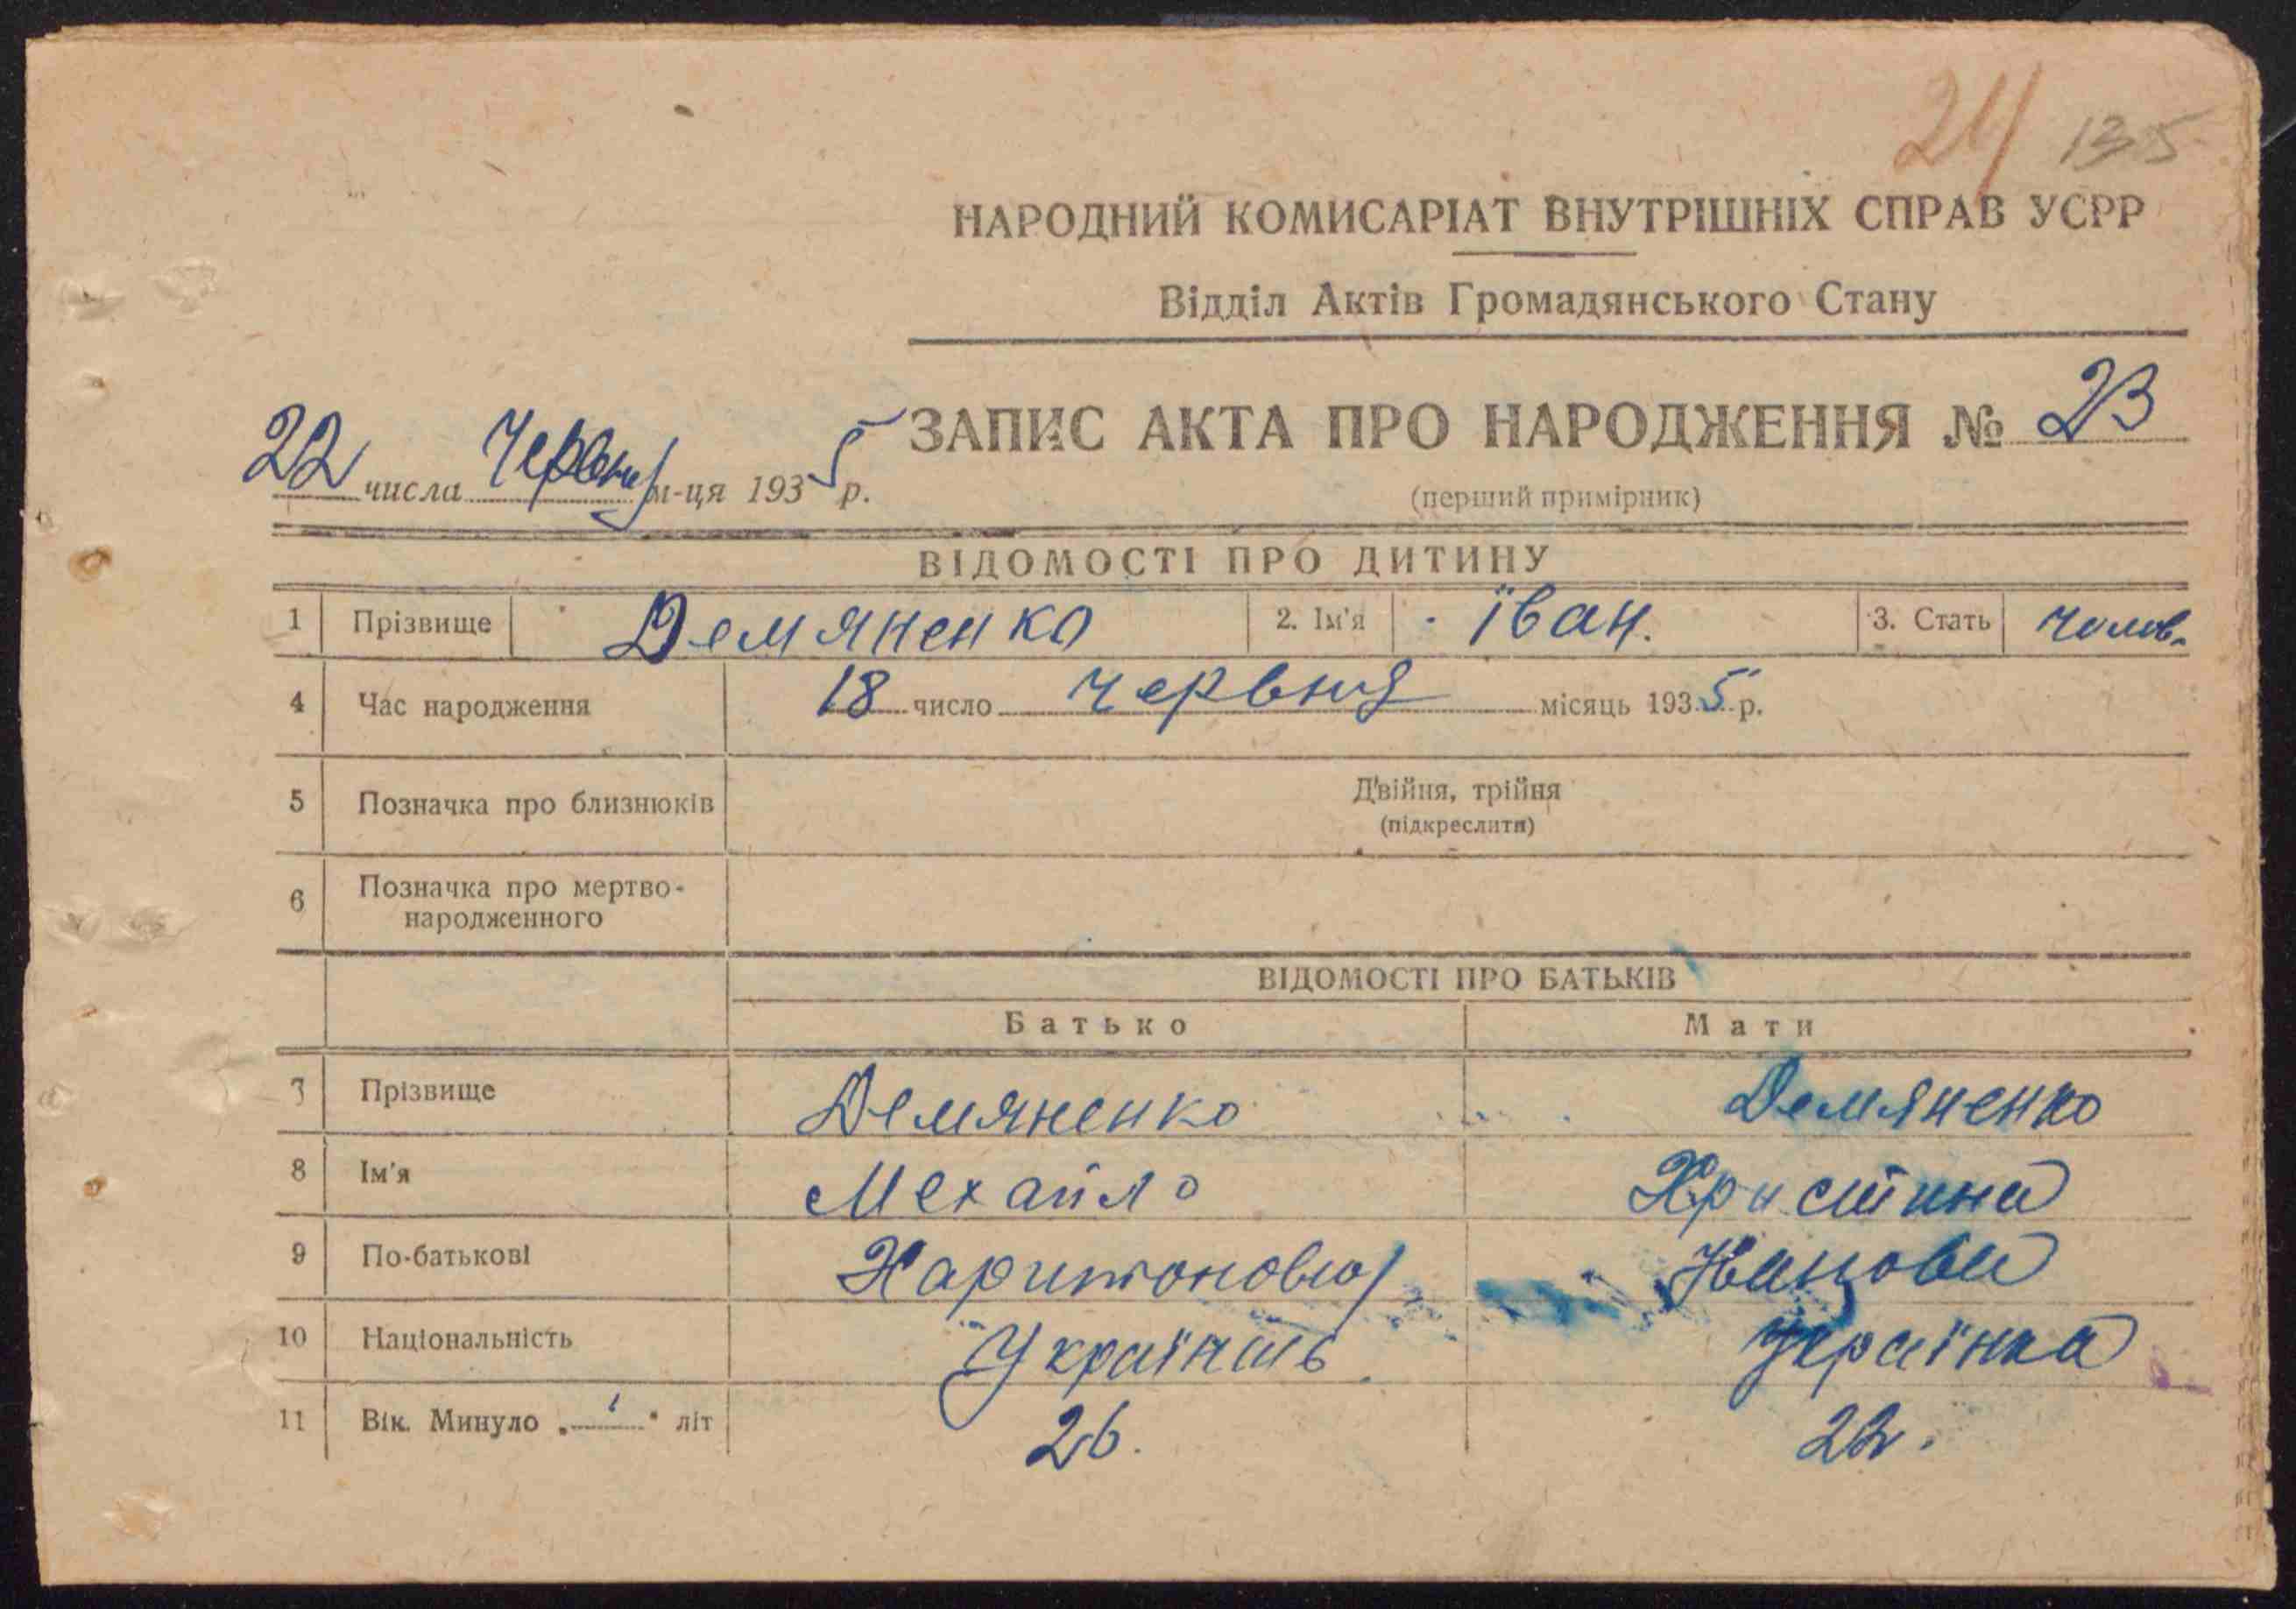 24 135
НАРОДНИЙ КОМИСАРІАТ ВНУТРІШНІХ СПРАВ УСРР
Відділ Актів Громадянського Стану
ЗАПИС АКТА ПРО НАРОДЖЕННЯ № 23
22 числа Червня м-ця 1935 р.
(перший примірник)
ВІДОМОСТІ ПРО ДИТИНУ
1 Прізвище Демяненко 2. Ім'я Іван. 3. Стать чолов.
4 Час народження 18 число червня місяць 1935 р.
5 Позначка про близнюків Двійня, трійня
(підкреслити)
6 Позначка про мертво-
народженного
ВІДОМОСТІ ПРО БАТЬКІВ
Батько Мати
7 Прізвище Демяненко Демяненко
8 Ім'я Мехайло Христина
9 По-батькові Харитонович
10 Національність Українець Українка
11 Вік. Минуло „ " літ 26. 22.